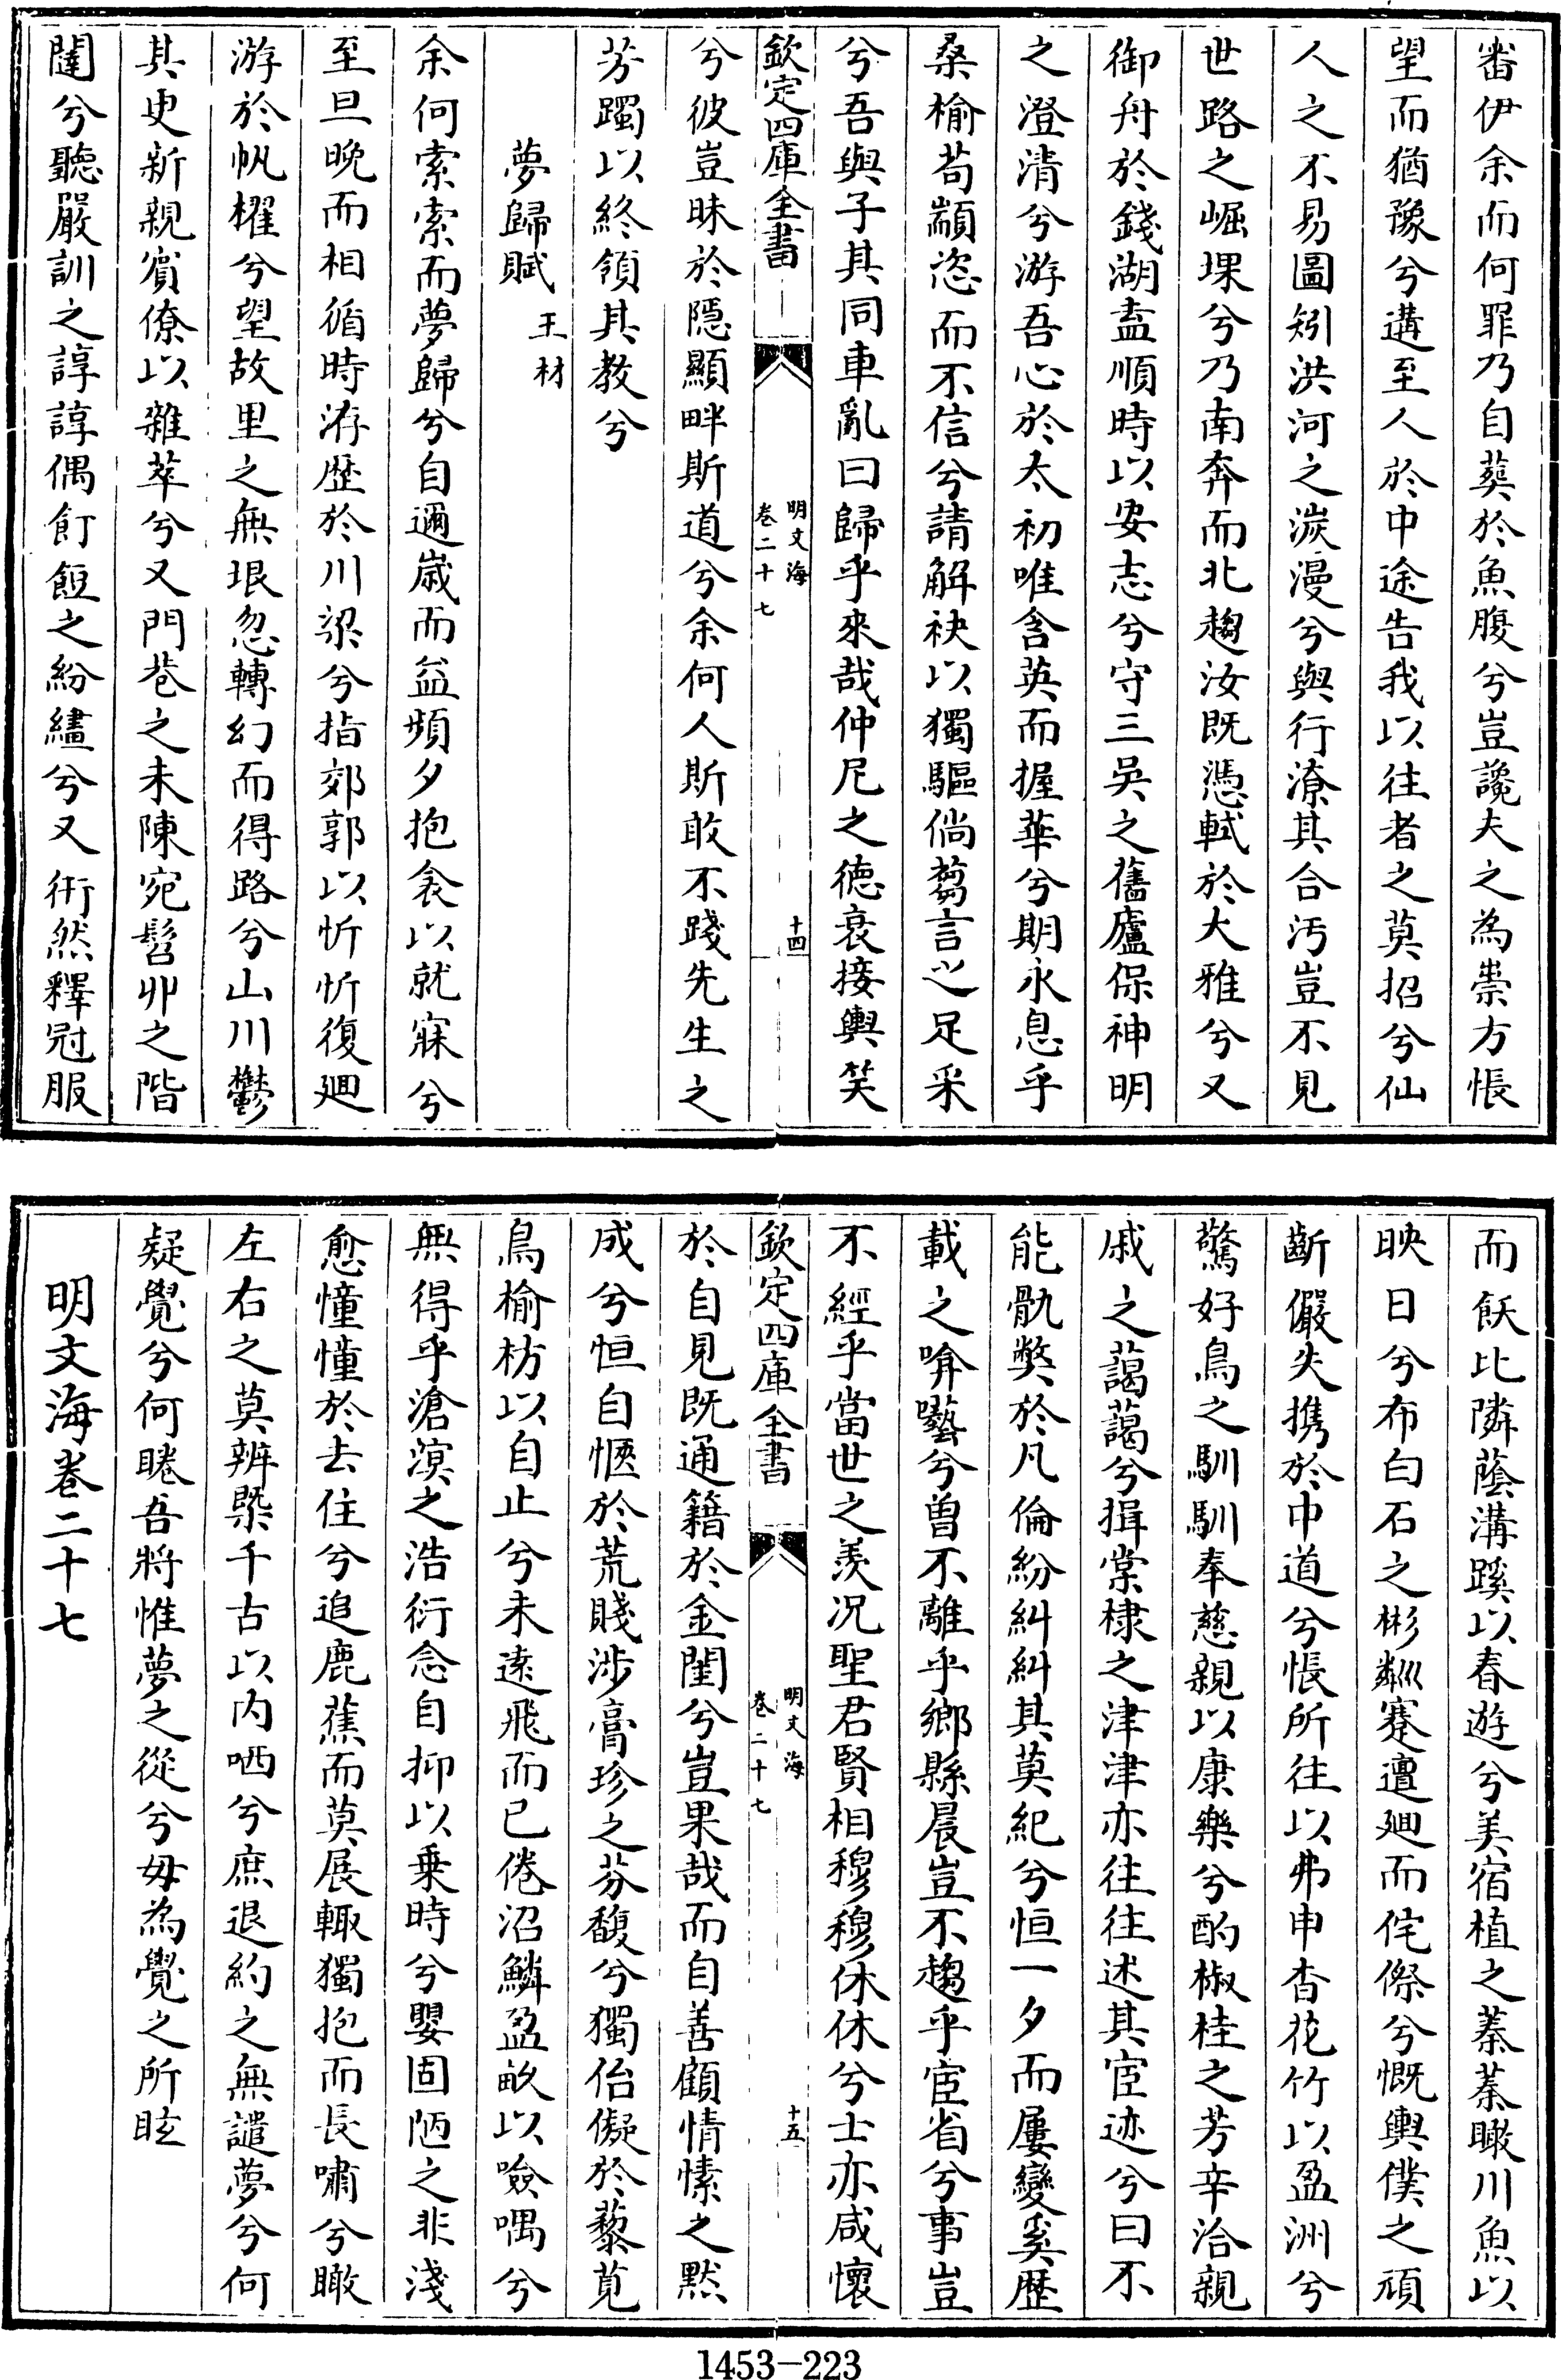 畨伊余而何罪乃自葬於魚腹兮豈讒夫之為祟方悵
望而猶豫兮遘至人於中途告我以往者之莫招兮仙
人之不易圖矧洪河之湠漫兮與行潦其合汚豈不見
世路之崛堁兮乃南奔而北趨汝既憑軾於大雅兮又
御舟於錢湖盍順時以安志兮守三吳之舊廬保神明
之澄清兮游吾心於太初唯含英而握華兮期永息乎
桑榆苟顓恣而不信兮請解袂以獨驅倘蒭言之足采
兮吾與子其同車亂曰歸乎來哉仲尼之德衰接輿笑
欽定四庫全書
明文海
卷二十七
十四
兮彼豈昧於隱顯畔斯道兮余何人斯敢不踐先生之
芳躅以終領其教兮
夢歸賦 王材
余何索索而夢歸兮自邇歲而益頻夕抱衾以就寐兮
至旦晚而相循時洊歷於川梁兮指郊郭以忻忻復廻
游於帆櫂兮望故里之無垠忽轉幻而得路兮山川鬱
其更新親賓僚以雜萃兮又門巷之未陳宛髫丱之階
闥兮聽嚴訓之諄諄偶飣餖之紛繣兮又衎然釋冠服
而飫比隣蔭溝蹊以春遊兮美宿植之蓁蓁瞰川魚以
映日兮布白石之彬粼蹇邅廻而侘傺兮慨輿僕之頑
齗儼失携於中道兮悵所往以弗申杳花竹以盈洲兮
驚好鳥之馴馴奉慈親以康樂兮酌椒桂之芳辛洽親
戚之藹藹兮揖棠棣之津津亦往往述其宦迹兮曰不
能骩獘於凡倫紛糾糾其莫紀兮恒一夕而屢變奚歷
載之喑囈兮曽不離乎鄉縣晨豈不趨乎宦省兮事豈
不經乎當世之羨况聖君賢相穆穆休休兮士亦咸懷
欽定四庫全書
明文海
卷二十七
十五
於自見既通籍於金閨兮豈果哉而自善顧情愫之黙
成兮恒自惬於荒賤涉膏珍之芬馥兮獨佁儗於藜莧
鳥榆枋以自止兮未逺飛而已倦沼鱗盈畝以噞喁兮
無得乎滄溟之浩衍念自抑以乗時兮嬰固陋之非淺
愈憧憧於去住兮追鹿蕉而莫展輙獨抱而長嘯兮瞰
左右之莫辨槩千古以内哂兮庶退約之無譴夢兮何
疑覺兮何睠吾將惟夢之從兮毋為覺之所眩
明文海卷二十七
1453-223